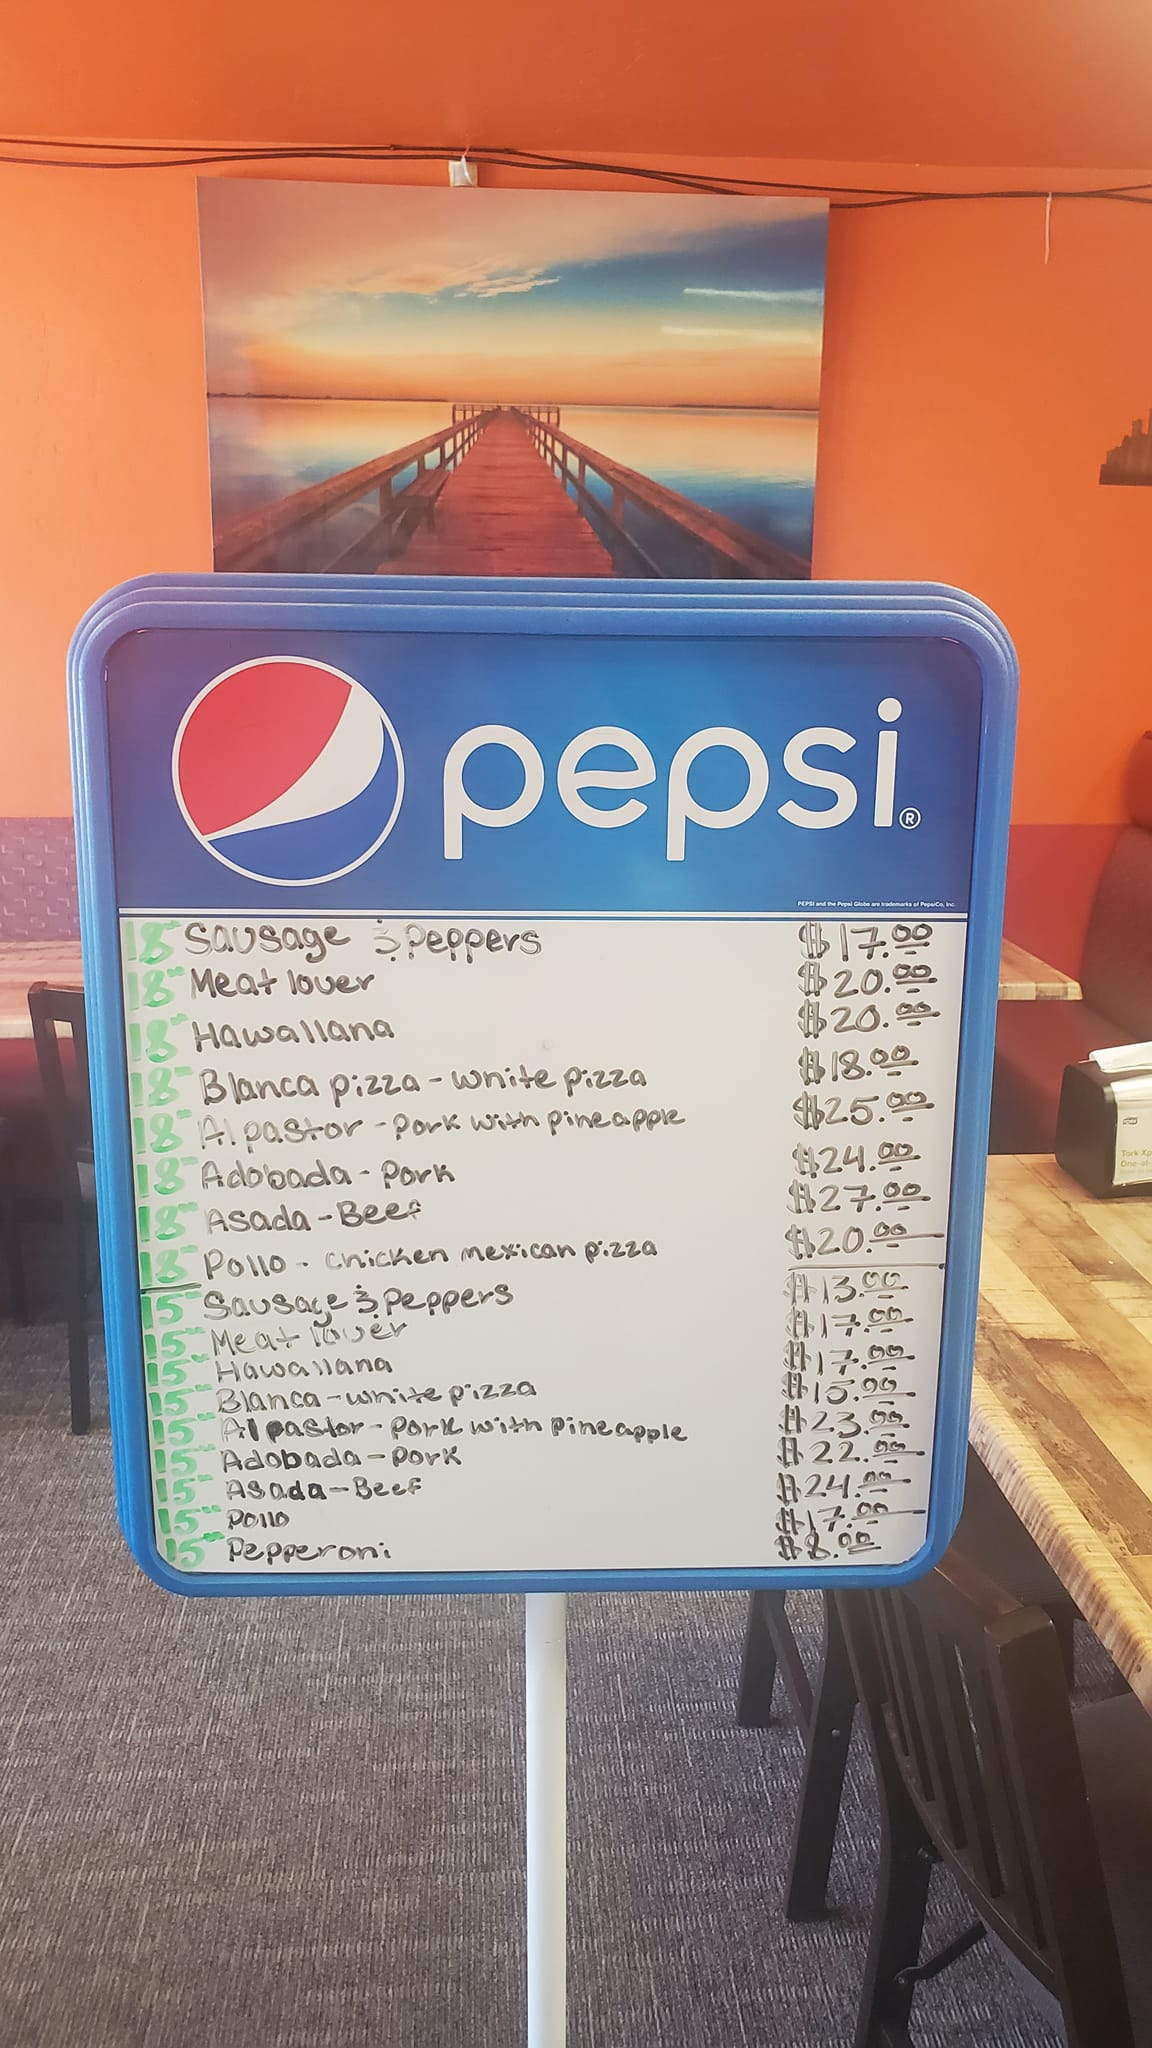 pepsi®
PEPSI and the Pepsi Globe are trademarks of PepsiCo, Inc.
18" Sausage & Peppers $17.00
18" Meat lover $20.00
18" Hawallana $20.00
18" Blanca pizza - white pizza $18.00
18" Al pastor - Pork with pineapple $25.00
18" Adobada - Pork $24.00
18" Asada - Beef $27.00
18" Pollo - chicken mexican pizza $20.00
15" Sausage & Peppers $13.00
15" Meat lover $17.00
15" Hawallana $17.00
15" Blanca - white pizza $15.00
15" Al pastor - Pork with pineapple $23.00
15" Adobada - Pork $22.00
15" Asada - Beef $24.00
15" Pollo $17.00
15" Pepperoni $8.00
Tork Xp
One-at-